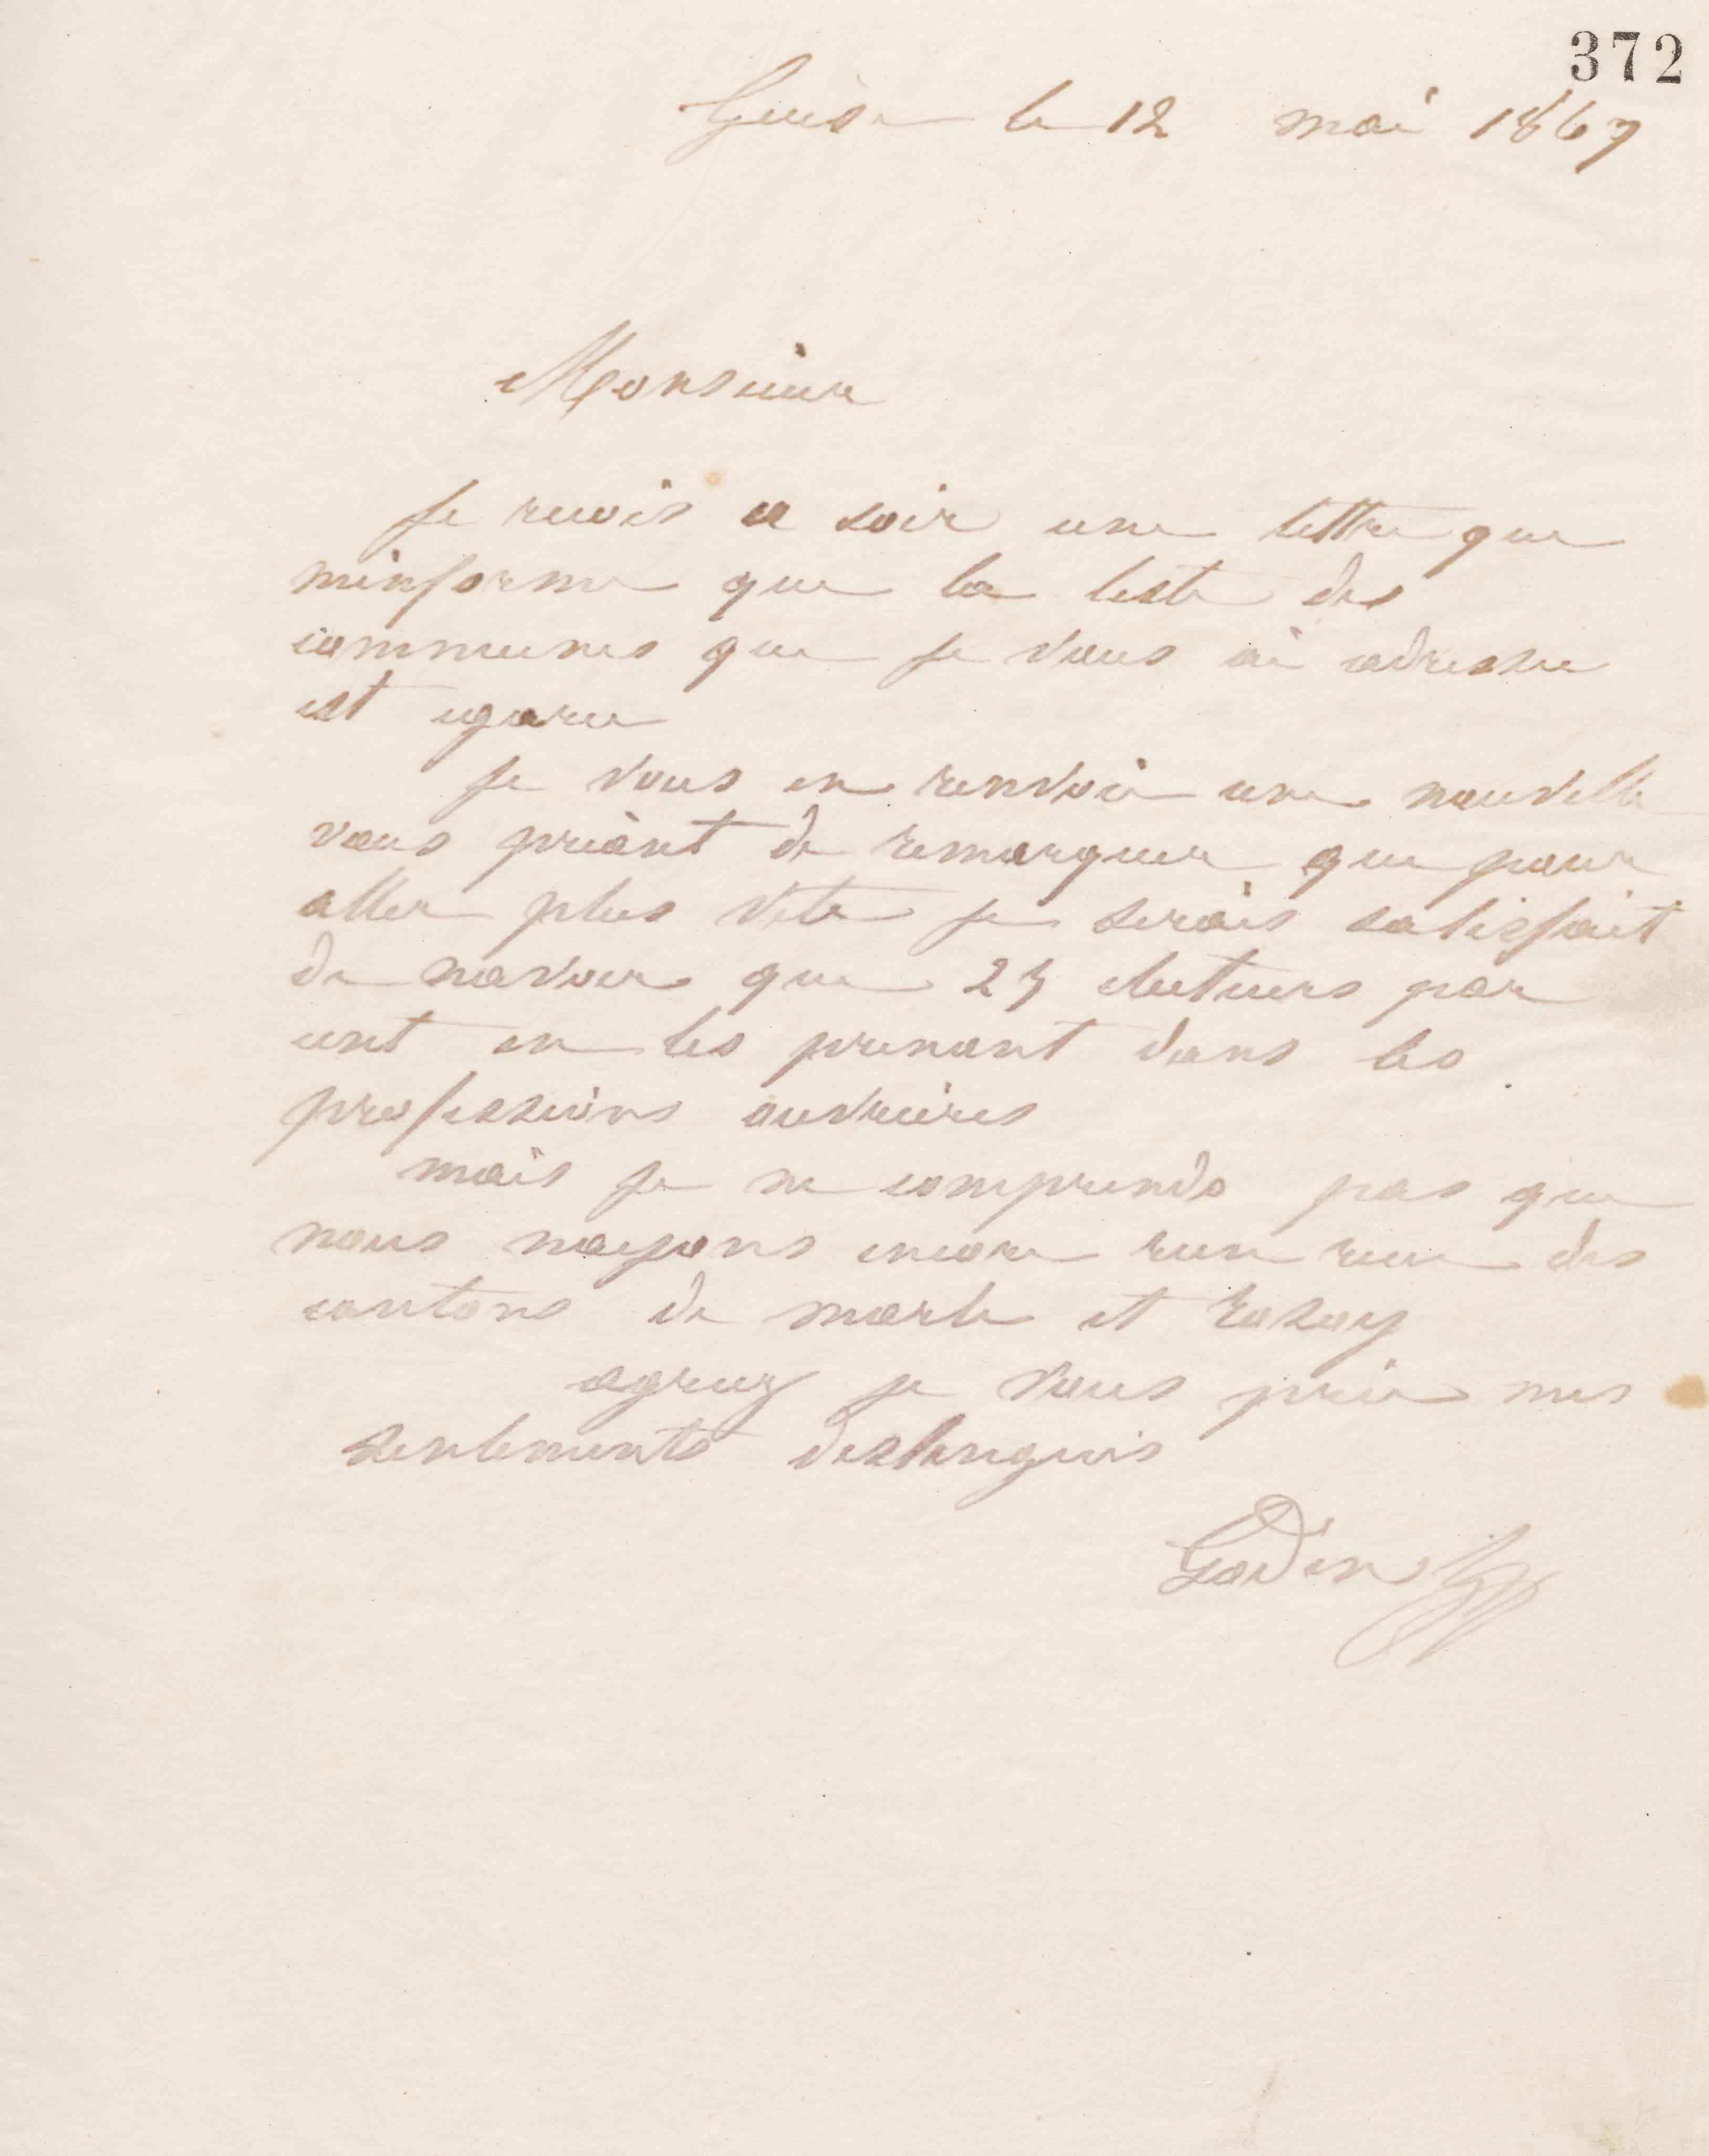 372
Guise le 12 mai 1869
Monsieur
Je recois ce soir une lettre que
minforme que la liste des
communes que je vous ai adressee
est egaree
Je vous en renvoie une nouvelle
vous priant de remarquer que pour
aller plus vite je serais satisfait
de navoir que 25 electeurs par
cent en les prenant dans les
professions ouvrieres
mais je ne comprends pas que
nous nayons encore rien recu des
cantons de marle et rozoy
agreez je vous prie mes
sentiments destingués
Godin